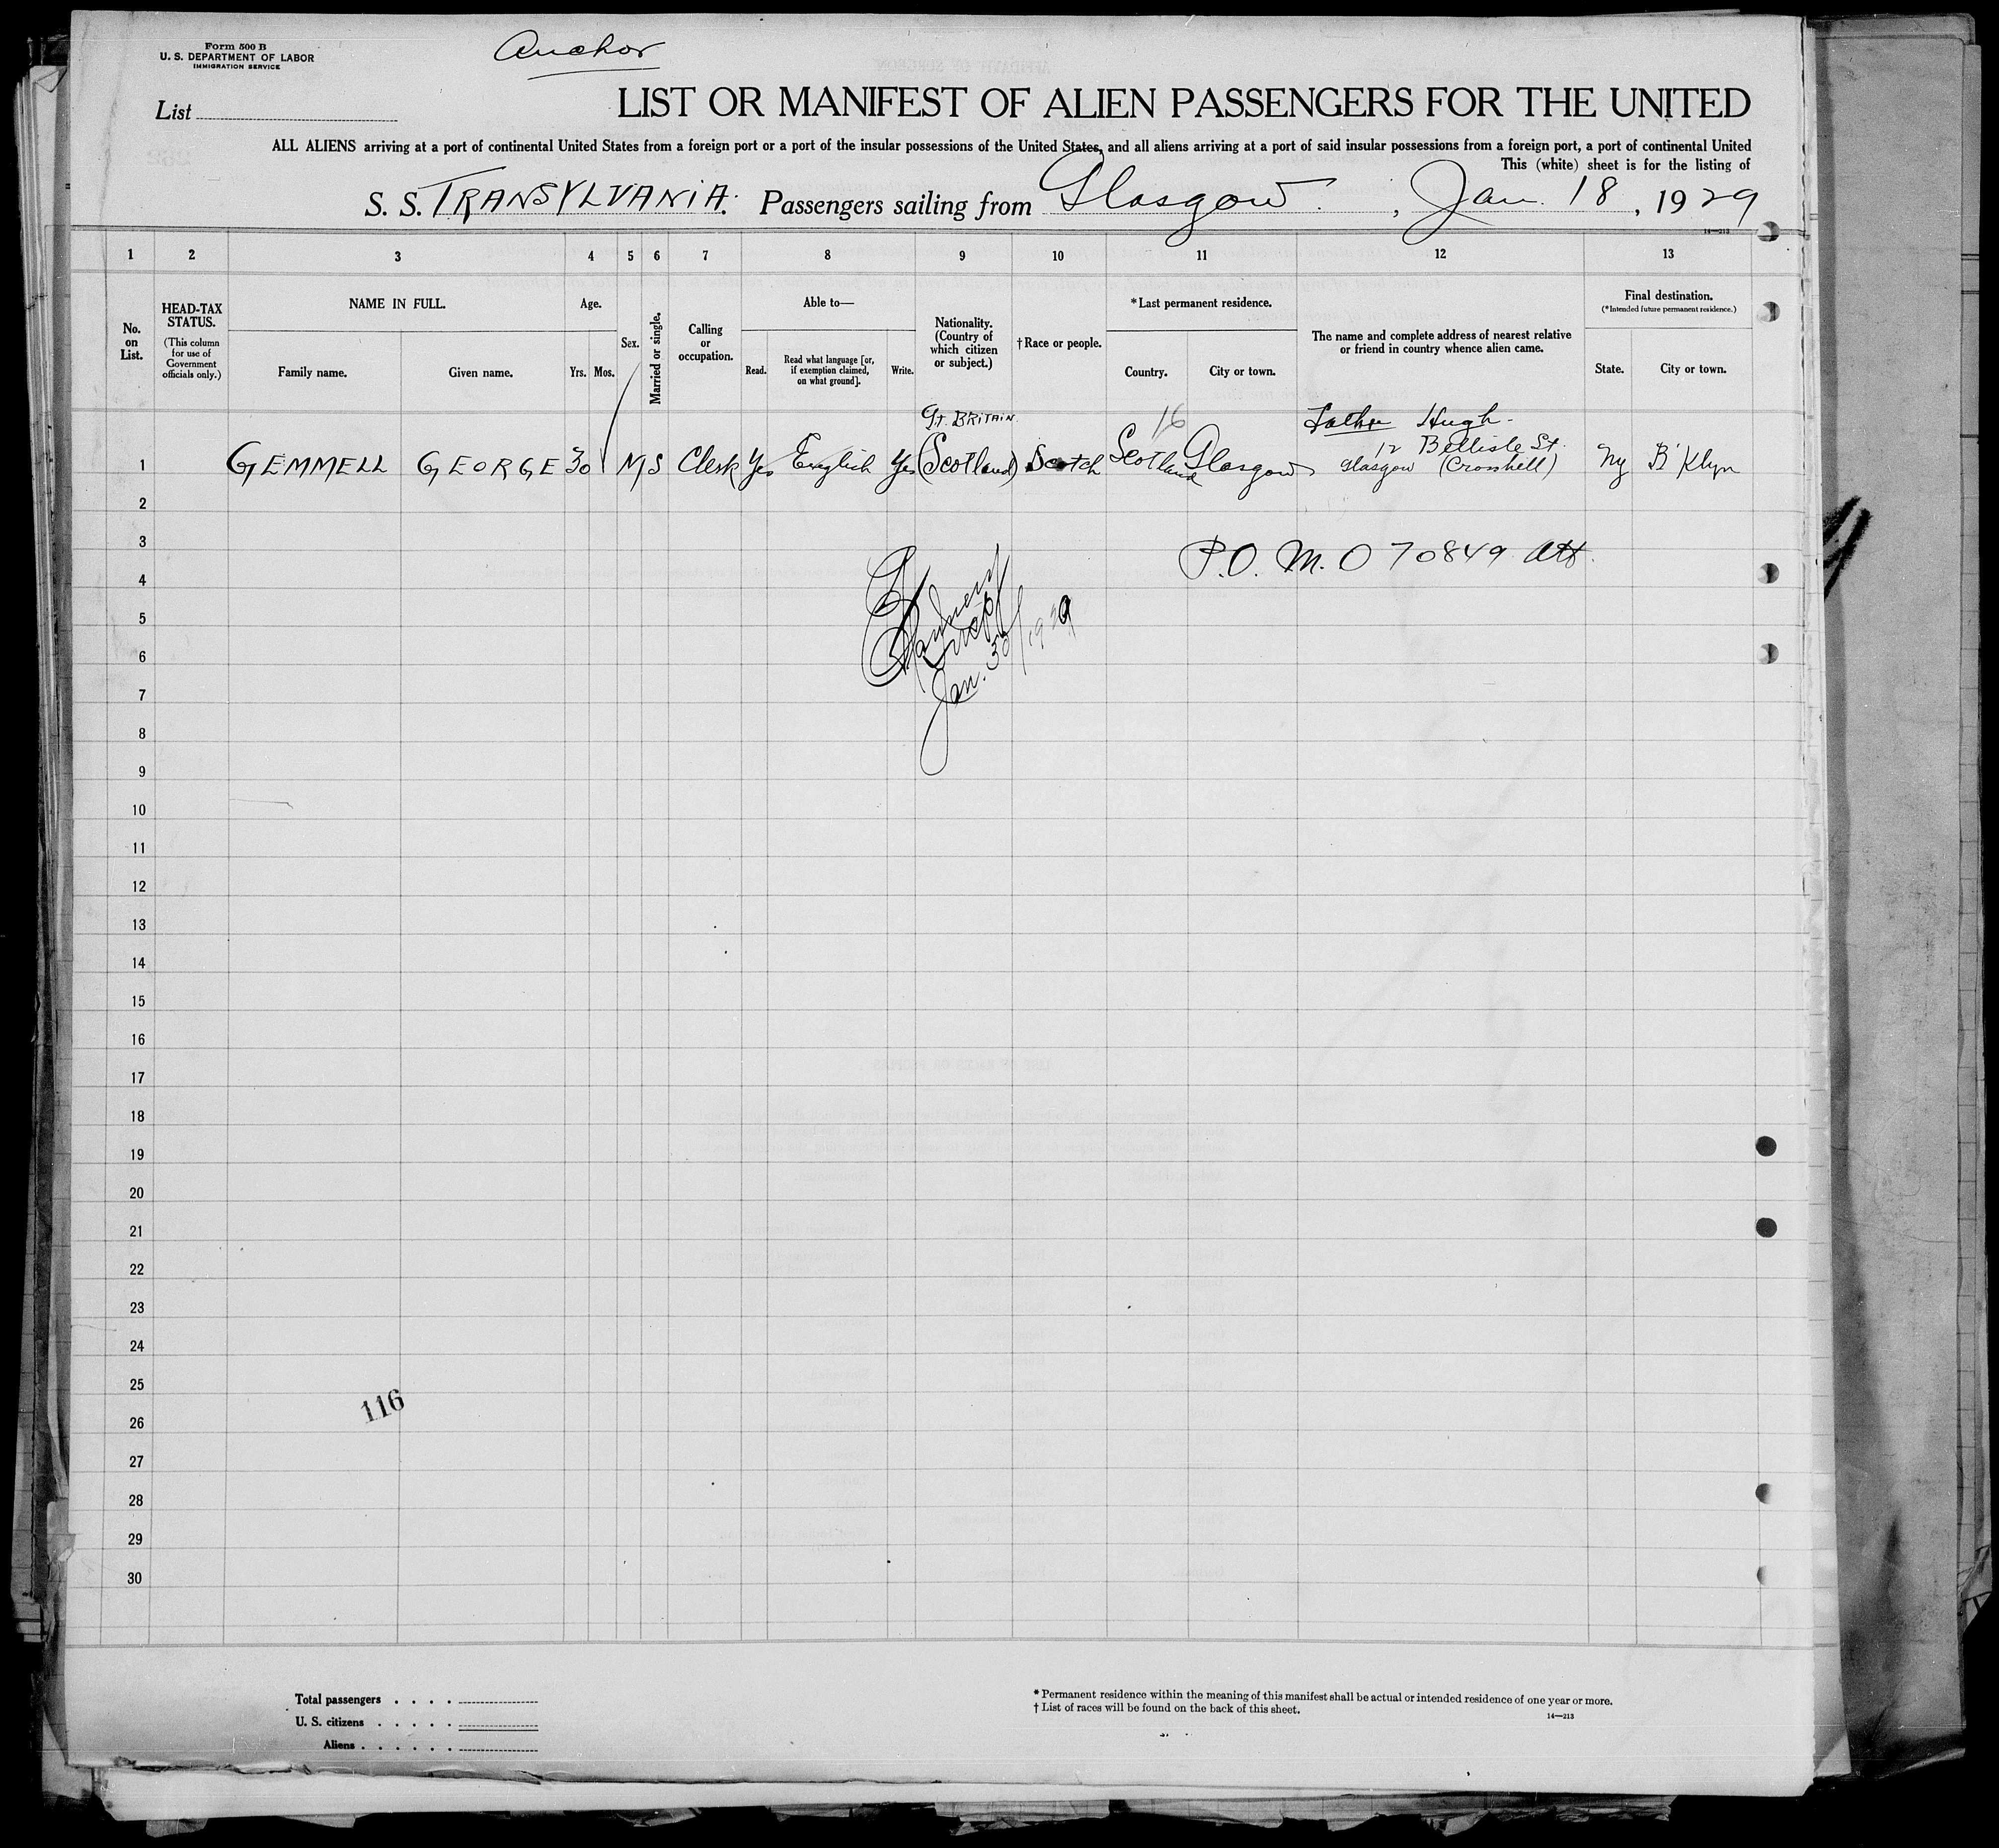 Form 500 B
U. S. DEPARTMENT OF LABOR
IMMIGRATION SERVICE
Anchor
List
LIST OR MANIFEST OF ALIEN PASSENGERS FOR THE UNITED
ALL ALIENS arriving at a port of continental United States from a foreign port or a port of the insular possessions of the United States, and all aliens arriving at a port of said insular possessions from a foreign port, a port of continental United
This (white) sheet is for the listing of
S. S. TRANSYLVANIA. Passengers sailing from Glasgow. , Jan. 18 , 1929
14—213
1 2 3 4 5 6 7 8 9 10 11 12 13
No. on List.
HEAD-TAX STATUS.
(This column for use of Government officials only.)
NAME IN FULL.
Family name. Given name.
Age.
Yrs. Mos.
Sex.
Married or single.
Calling or occupation.
Able to—
Read. Read what language [or, if exemption claimed, on what ground]. Write.
Nationality. (Country of which citizen or subject.)
†Race or people.
*Last permanent residence.
Country. City or town.
The name and complete address of nearest relative or friend in country whence alien came.
Final destination.
(*Intended future permanent residence.)
State. City or town.
Gt. BRITAIN 16 Father Hugh-
12 Bellisle St.
1 GEMMELL GEORGE 30 M S Clerk Yes English Yes (Scotland) Scotch Scotland Glasgow Glasgow (Crosshill) NY B'Klyn
2
3 P.O. M. O 70849 Att.
4
5
6
Jan. 30/1929
7
8
9
10
11
12
13
14
15
16
17
18
19
20
21
22
23
24
25
116
26
27
28
29
30
Total passengers . . . .
U. S. citizens . . . . .
Aliens . . . . . .
* Permanent residence within the meaning of this manifest shall be actual or intended residence of one year or more.
† List of races will be found on the back of this sheet.
14—213